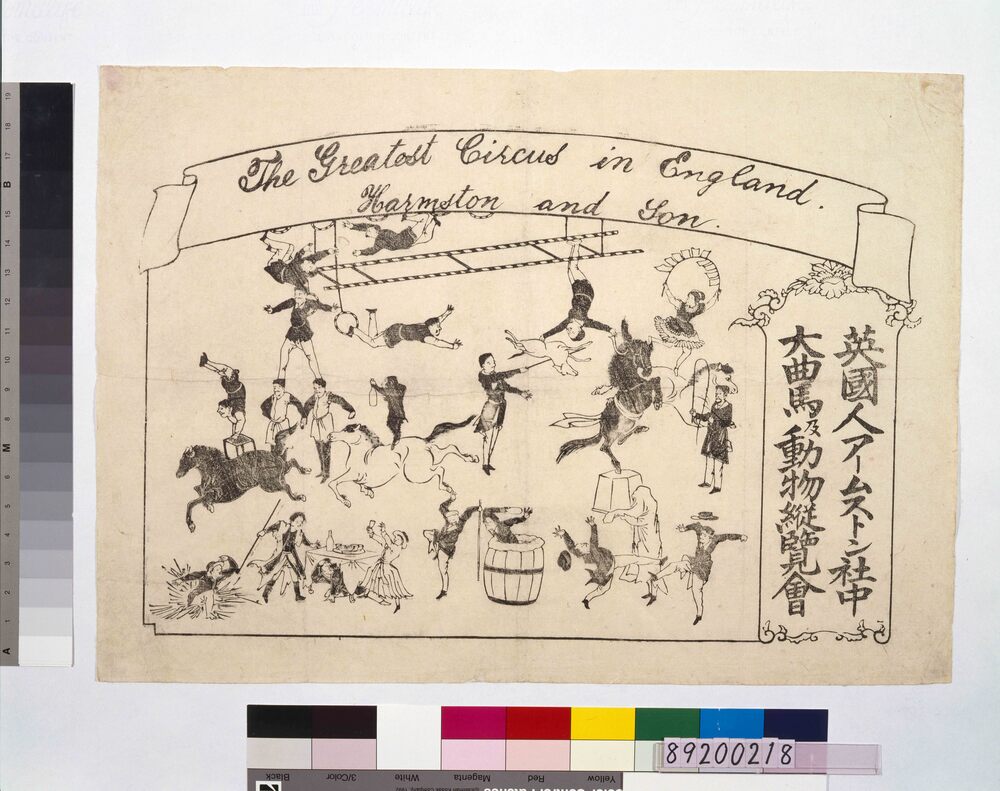 The Greatest Circus in England.
Harmston and Son.
英國人アームストン社中
大曲馬及動物縦覽會
89200218
Black
3/Color
White
Magenta
Red
Yellow
19
18
17
B
15
14
13
12
11
10
9
8
M
6
5
4
3
2
1
A